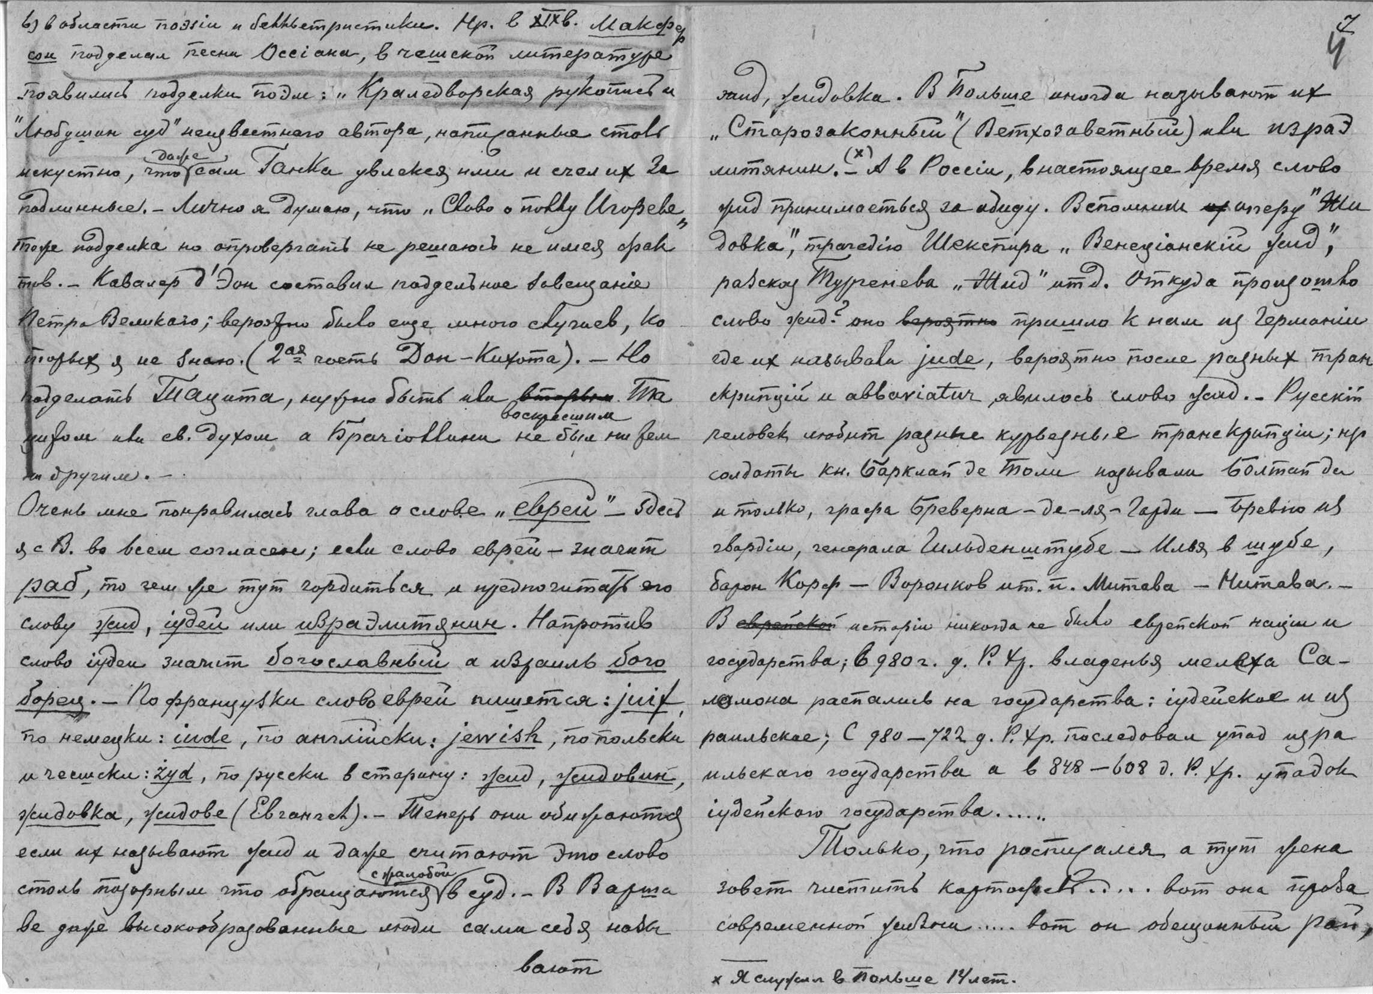 в) в области поэзіи и беллетристики. Нр. в XIX в. Макфер
сон подделал песни Оссіана, в чешской литературе
появились подделки поэм: „Краледворская рукопись и
"Любушин суд" неизвестнаго автора, написанные столь
искустно, что даже сам Ганка увлекся ими и счел их за
подлинные. – Лично я думаю, что „Слово о полку Игореве"
тоже подделка но опровергать не решаюсь не имея фак
тов. – Кавалер д'Эон составил поддельное завещаніе
Петра Великаго; вероятно было еще много случаев, ко
торых я не знаю. (2ая часть Дон-Кихота). – Но
подделать Тацита, нужно быть или вторым воскресшим Та
цитом или св. духом а Брачіоллини не был ни тем
ни другим. –
Очень мне понравилась глава о слове „еврей" – здесь
я с В. во всем согласен; если слово еврей – значит
раб, то чем же тут гордиться и предпочитать его
слову жид, іудей или израэлитянин. Напротив
слово іудеи значит богославный а израиль бого
борец. – По французки слово еврей пишется: juif,
по немецки: iude, по англійски: jewish, по польски
и чешски: żyd, по русски в старину: жид, жидовин,
жидовка, жидове (Евангел). – Теперь они обижаются
если их называют жид и даже считают это слово
столь позорным что обращаются с жалобой в суд. – В Варша
ве даже высокообразованные люди сами себя назы
вают
7
4
жид, жидовка. В Польше иногда называют их
„Старозаконный" (Ветхозаветный) или израэ
литянин. (x) – А в Россіи, в настоящее время слово
жид принимаеться за обиду. Вспомним оперу "Жи
довка", трагедію Шекспира „Венеціанскій жид",
разсказ Тургенева „Жид" итд. Откуда произошло
слово жид? оно вероятно пришло к нам из Германіи
где их называли jude, вероятно после разных тран
скрипцій и abbaviatur, явилось слово жид. – Русскій
человек любит разные курьезные транскрипціи; нр
солдаты кн. Барклай де Толи называли Болтай да
и только, графа Бреверна-де-ля-Гарди – Бревно из
гвардіи, генерала Гильденштубе – Илья в шубе,
барон Корф – Воронков ит. п. Митава – Нитава. –
В еврейской исторіи никогда не было еврейской націи и
государства; в 980 г. д. Р. Хр. владенья мелеха Са-
ломона распались на государства: іудейское и из
раильское; С 980–722 д. Р. Хр. последовал упад изра
ильскаго государства а в 848–608 д. Р. Хр. упадок
іудейскаго государства.....
Только, что росписался а тут жена
зовет чистить картофель..... вот она проза
современной жизни..... вот он обещанный рай,
x Я служил в Польше 14 лет.